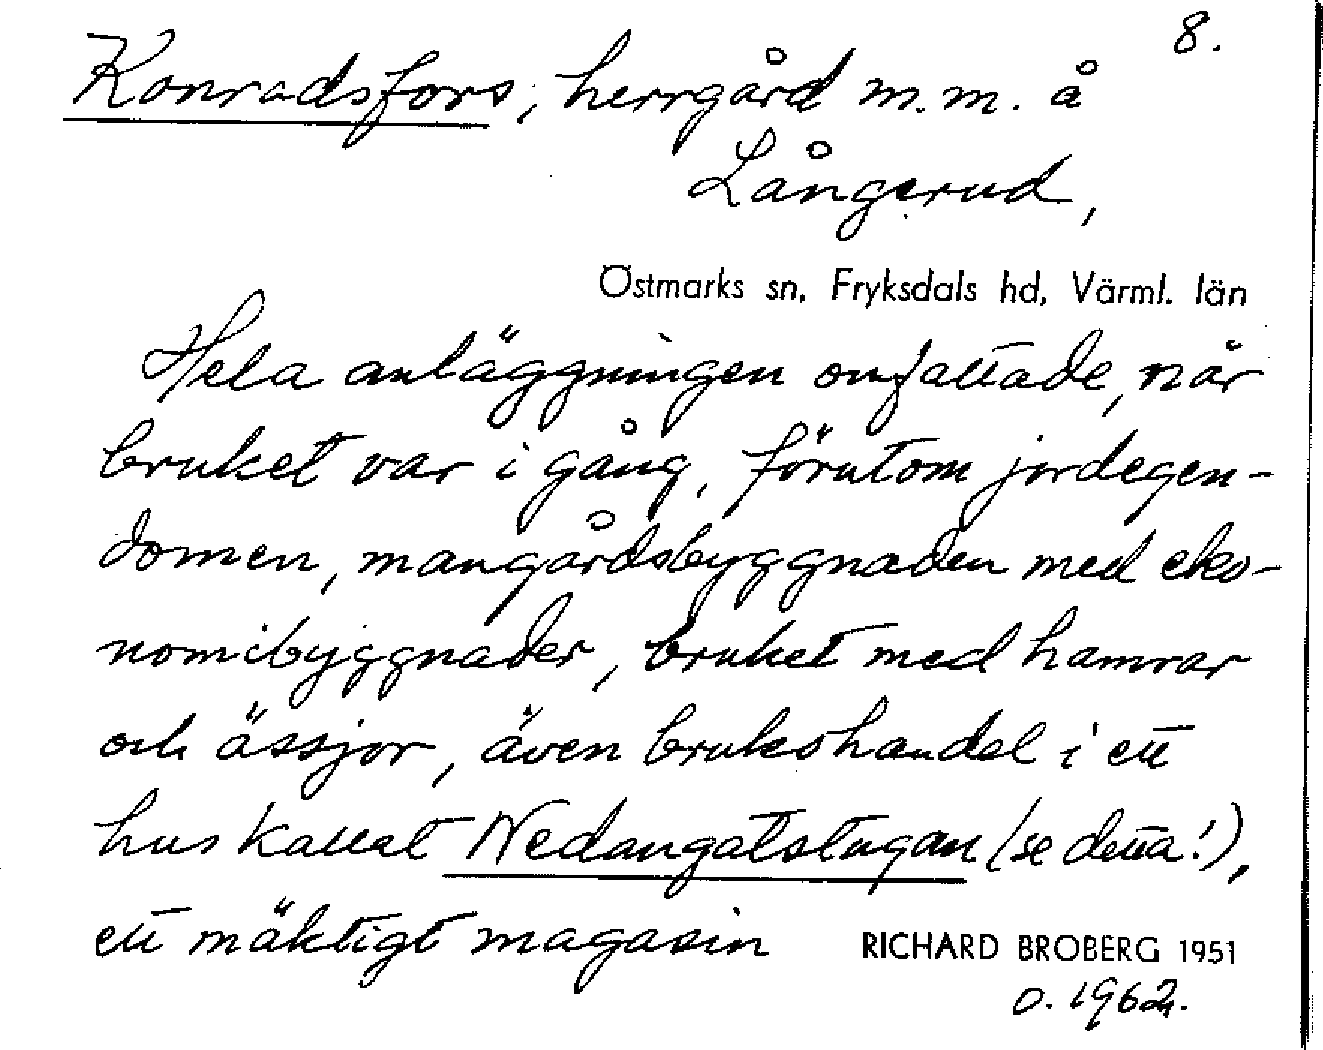 8.
Konradsfors, herrgård m.m. å
Långerud,
Östmarks sn, Fryksdals hd, Värml. län
Hela anläggningen omfattade, när
bruket var i gång, förutom jordegen-
domen, mangårdsbyggnaden med eko-
nomibyggnader, bruket med hamrar
och ässjor, även brukshandel i ett
hus kallat Nedangatstugan (se detta!),
ett mäktigt magasin
RICHARD BROBERG 1951
o. 1962.